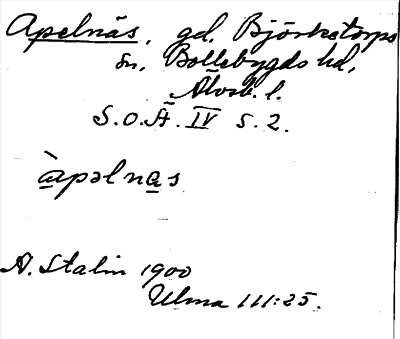 Apelnäs, gd, Björketorps
sn, Bollebygds hd,
Älvsb. l.
S.O.Ä. IV s. 2.
àpəlnas
A. Stalin 1900
Ulma 111:25.